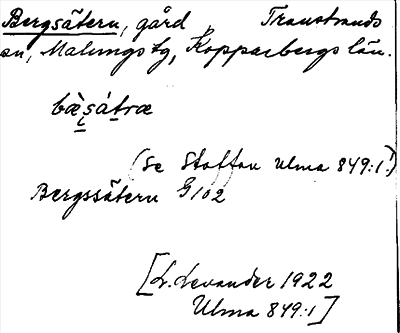 Bergsätern, gård, Transtrands
sn, Malungs tg, Kopparbergs län.
bæ̀ṣátræ
(se Staffan Ulma 849:1.)
Bergssätern G 102
[L. Levander 1922
Ulma 849:1]